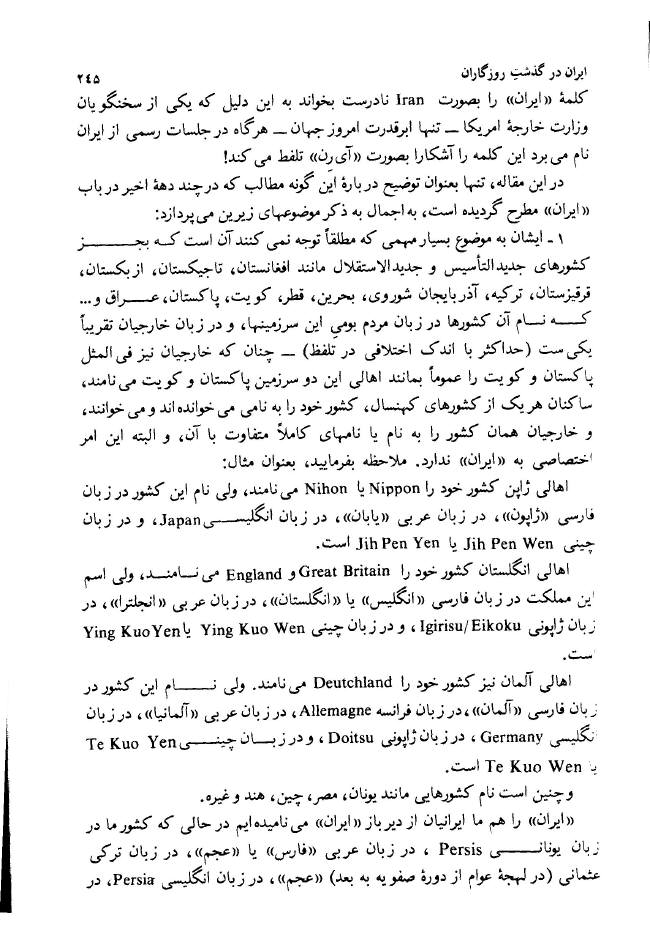 ایران در گذشتِ روزگاران ۲٤۵
کلمهٔ «ایران» را بصورت Iran نادرست بخواند به این دلیل که یکی از سخنگویان
وزارت خارجهٔ امریکا ــ تنها ابرقدرت امروز جهان ــ هرگاه در جلسات رسمی از ایران
نام می برد این کلمه را آشکارا بصورت «آی رَن» تلفط می کند!
در این مقاله، تنها بعنوان توضیح دربارهٔ این گونه مطالب که در چند دههٔ اخیر در باب
«ایران» مطرح گردیده است، به اجمال به ذکر موضوعهای زیرین می پردازد:
۱ ـ ایشان به موضوع بسیار مهمی که مطلقاً توجه نمی کنند آن است کــه بجــــز
کشورهای جدیدالتأسیس و جدیدالاستقلال مانند افغانستان، تاجیکستان، ازبکستان،
قرقیزستان، ترکیه، آذربایجان شوروی، بحرین، قطر، کویت، پاکستان، عــراق و...
کـــه نــام آن کشورها در زبان مردم بومیِ این سرزمینها، و در زبان خارجیان تقریباً
یکی ست (حداکثر با اندک اختلافی در تلفظ) ــ چنان که خارجیان نیز فی المثل
پاکستان و کویت را عموماً بمانند اهالی این دو سرزمین پاکستان و کویت می نامند،
ساکنان هر یک از کشورهای کهنسال، کشور خود را به نامی می خوانده اند و می خوانند،
و خارجیان همان کشور را به نام یا نامهای کاملاً متفاوت با آن، و البته این امر
اختصاصی به «ایران» ندارد. ملاحظه بفرمایید، بعنوان مثال:
اهالی ژاپن کشور خود را Nippon یا Nihon می نامند، ولی نام این کشور در زبان
فارسی «ژاپون»، در زبان عربی «یابان»، در زبان انگلیســیJapan، و در زبان
چینی Jih Pen Wen یا Jih Pen Yen است.
اهالی انگلستان کشور خود را Great Britain و England می نــامنــد، ولی اسم
این مملکت در زبان فارسی «انگلیس» یا «انگلستان»، در زبان عربی «انجلترا»، در
زبان ژاپونی Igirisu/Eikoku ، و در زبان چینی Ying Kuo Wen یا Ying Kuo Yen
است.
اهالی آلمان نیز کشور خود را Deutchland می نامند. ولی نــام این کشور در
زبان فارسی «آلمان»، در زبان فرانسه Allemagne، در زبان عربی «آلمانیا»، در زبان
انگلیسی Germany ، در زبان ژاپونی Doitsu ، و در زبــان چینــیTe Kuo Yen
یا Te Kuo Wen است.
و چنین است نام کشورهایی مانند یونان، مصر، چین، هند و غیره.
«ایران» را هم ما ایرانیان از دیر باز «ایران» می نامیده ایم در حالی که کشور ما در
زبان یونانـــی Persis ، در زبان عربی «فارس» یا «عجم»، در زبان ترکی
عثمانی (در لهجهٔ عوام از دورهٔ صفویه به بعد) «عجم»، در زبان انگلیسی Persia، در